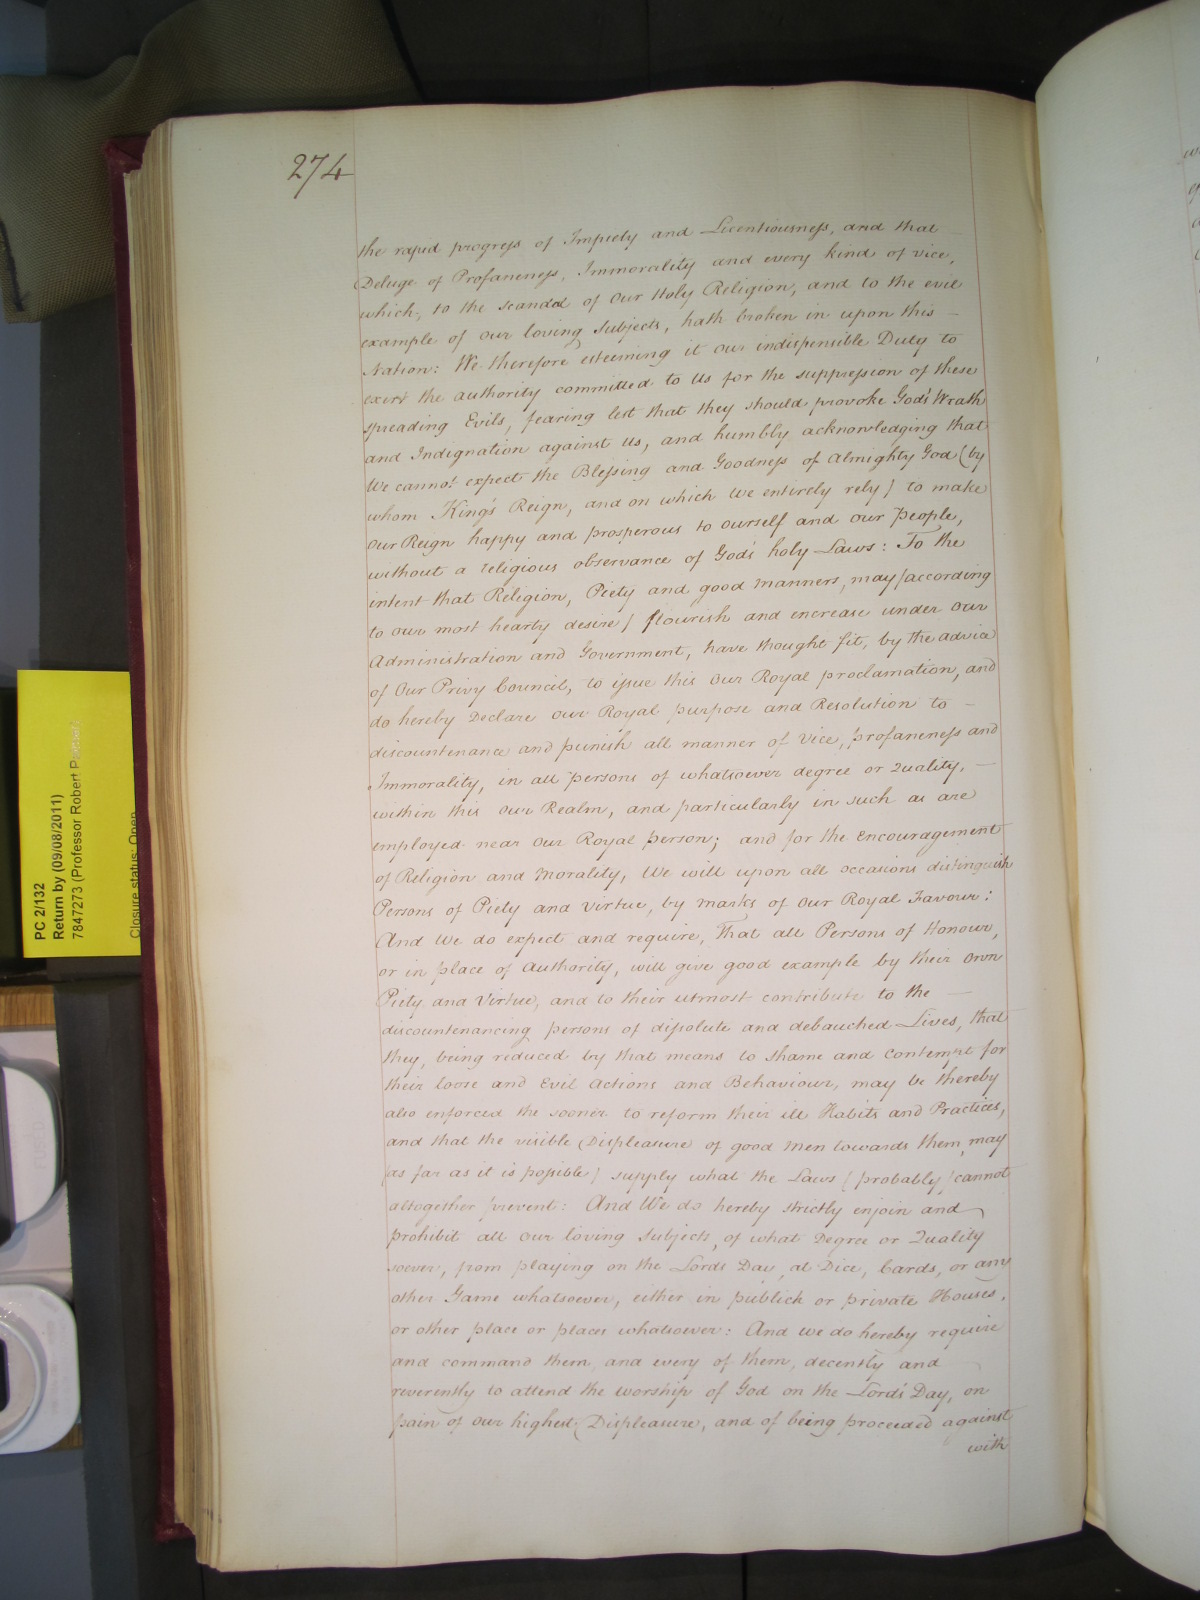 274
the rapid progress of Impiety and Licentiousness, and that
Deluge of Profaneness, Immorality and every kind of vice,
which, to the scandal of our Holy Religion, and to the evil
example of our loving Subjects, hath broken in upon this —
Nation: We therefore esteeming it our indispensible Duty to
exert the authority committed to Us for the suppression of these
spreading Evils, fearing lest that they should provoke God's Wrath
and Indignation against us, and humbly acknowledging that
We cannot expect the Blessing and Goodness of Almighty God (by
whom King's Reign, and on which We entirely rely) to make
our Reign happy and prosperous to ourself and our People,
without a religious observance of God's holy Laws: To the
intent that Religion, Piety and good manners, may (according
to our most hearty desire) flourish and increase under our
Administration and Government, have thought fit, by the advice
of Our Privy Council, to issue this Our Royal proclamation, and
do hereby Declare our Royal purpose and Resolution to —
discountenance and punish all manner of Vice, profaneness and
Immorality, in all persons of whatsoever degree or Quality, —
within this our Realm, and particularly in such as are
employed near our Royal person; and for the encouragement
of Religion and Morality, We will upon all occasions distinguish
Persons of Piety and Virtue, by marks of our Royal Favour:
And We do expect and require, That all Persons of Honour,
or in place of Authority, will give good example by their own
Piety and Virtue, and to their utmost contribute to the —
discountenancing persons of dissolute and debauched Lives, that
they, being reduced by that means to shame and contempt for
their loose and Evil Actions and Behaviour, may be thereby
also enforced the sooner to reform their ill Habits and Practices,
and that the visible Displeasure of good men towards them, may
(as far as it is possible) supply what the Laws (probably) cannot
altogether prevent: And We do hereby strictly enjoin and
prohibit all our loving Subjects, of what Degree or Quality
soever, from playing on the Lords Day, at Dice, Cards, or any
other Game whatsoever, either in publick or private Houses,
or other place or places whatsoever: And we do hereby require
and command them, and every of them, decently and
reverently to attend the worship of God on the Lord's Day, on
pain of our highest Displeasure, and of being proceeded against
with
PC 2/132
Return by (09/08/2011)
7847273 (Professor Robert
Closure status: Open